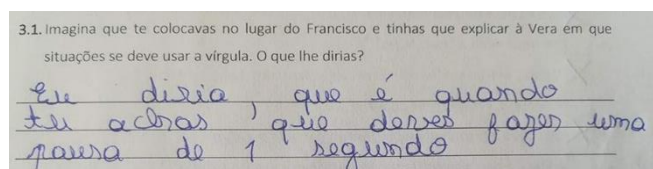 3.1. Imagina que te colocavas no lugar do Francisco e tinhas que explicar à Vera em que
situações se deve usar a vírgula. O que lhe dirias?
Eu diria, que é quando
tu achas, que deves fazer uma
pausa de 1 segundo